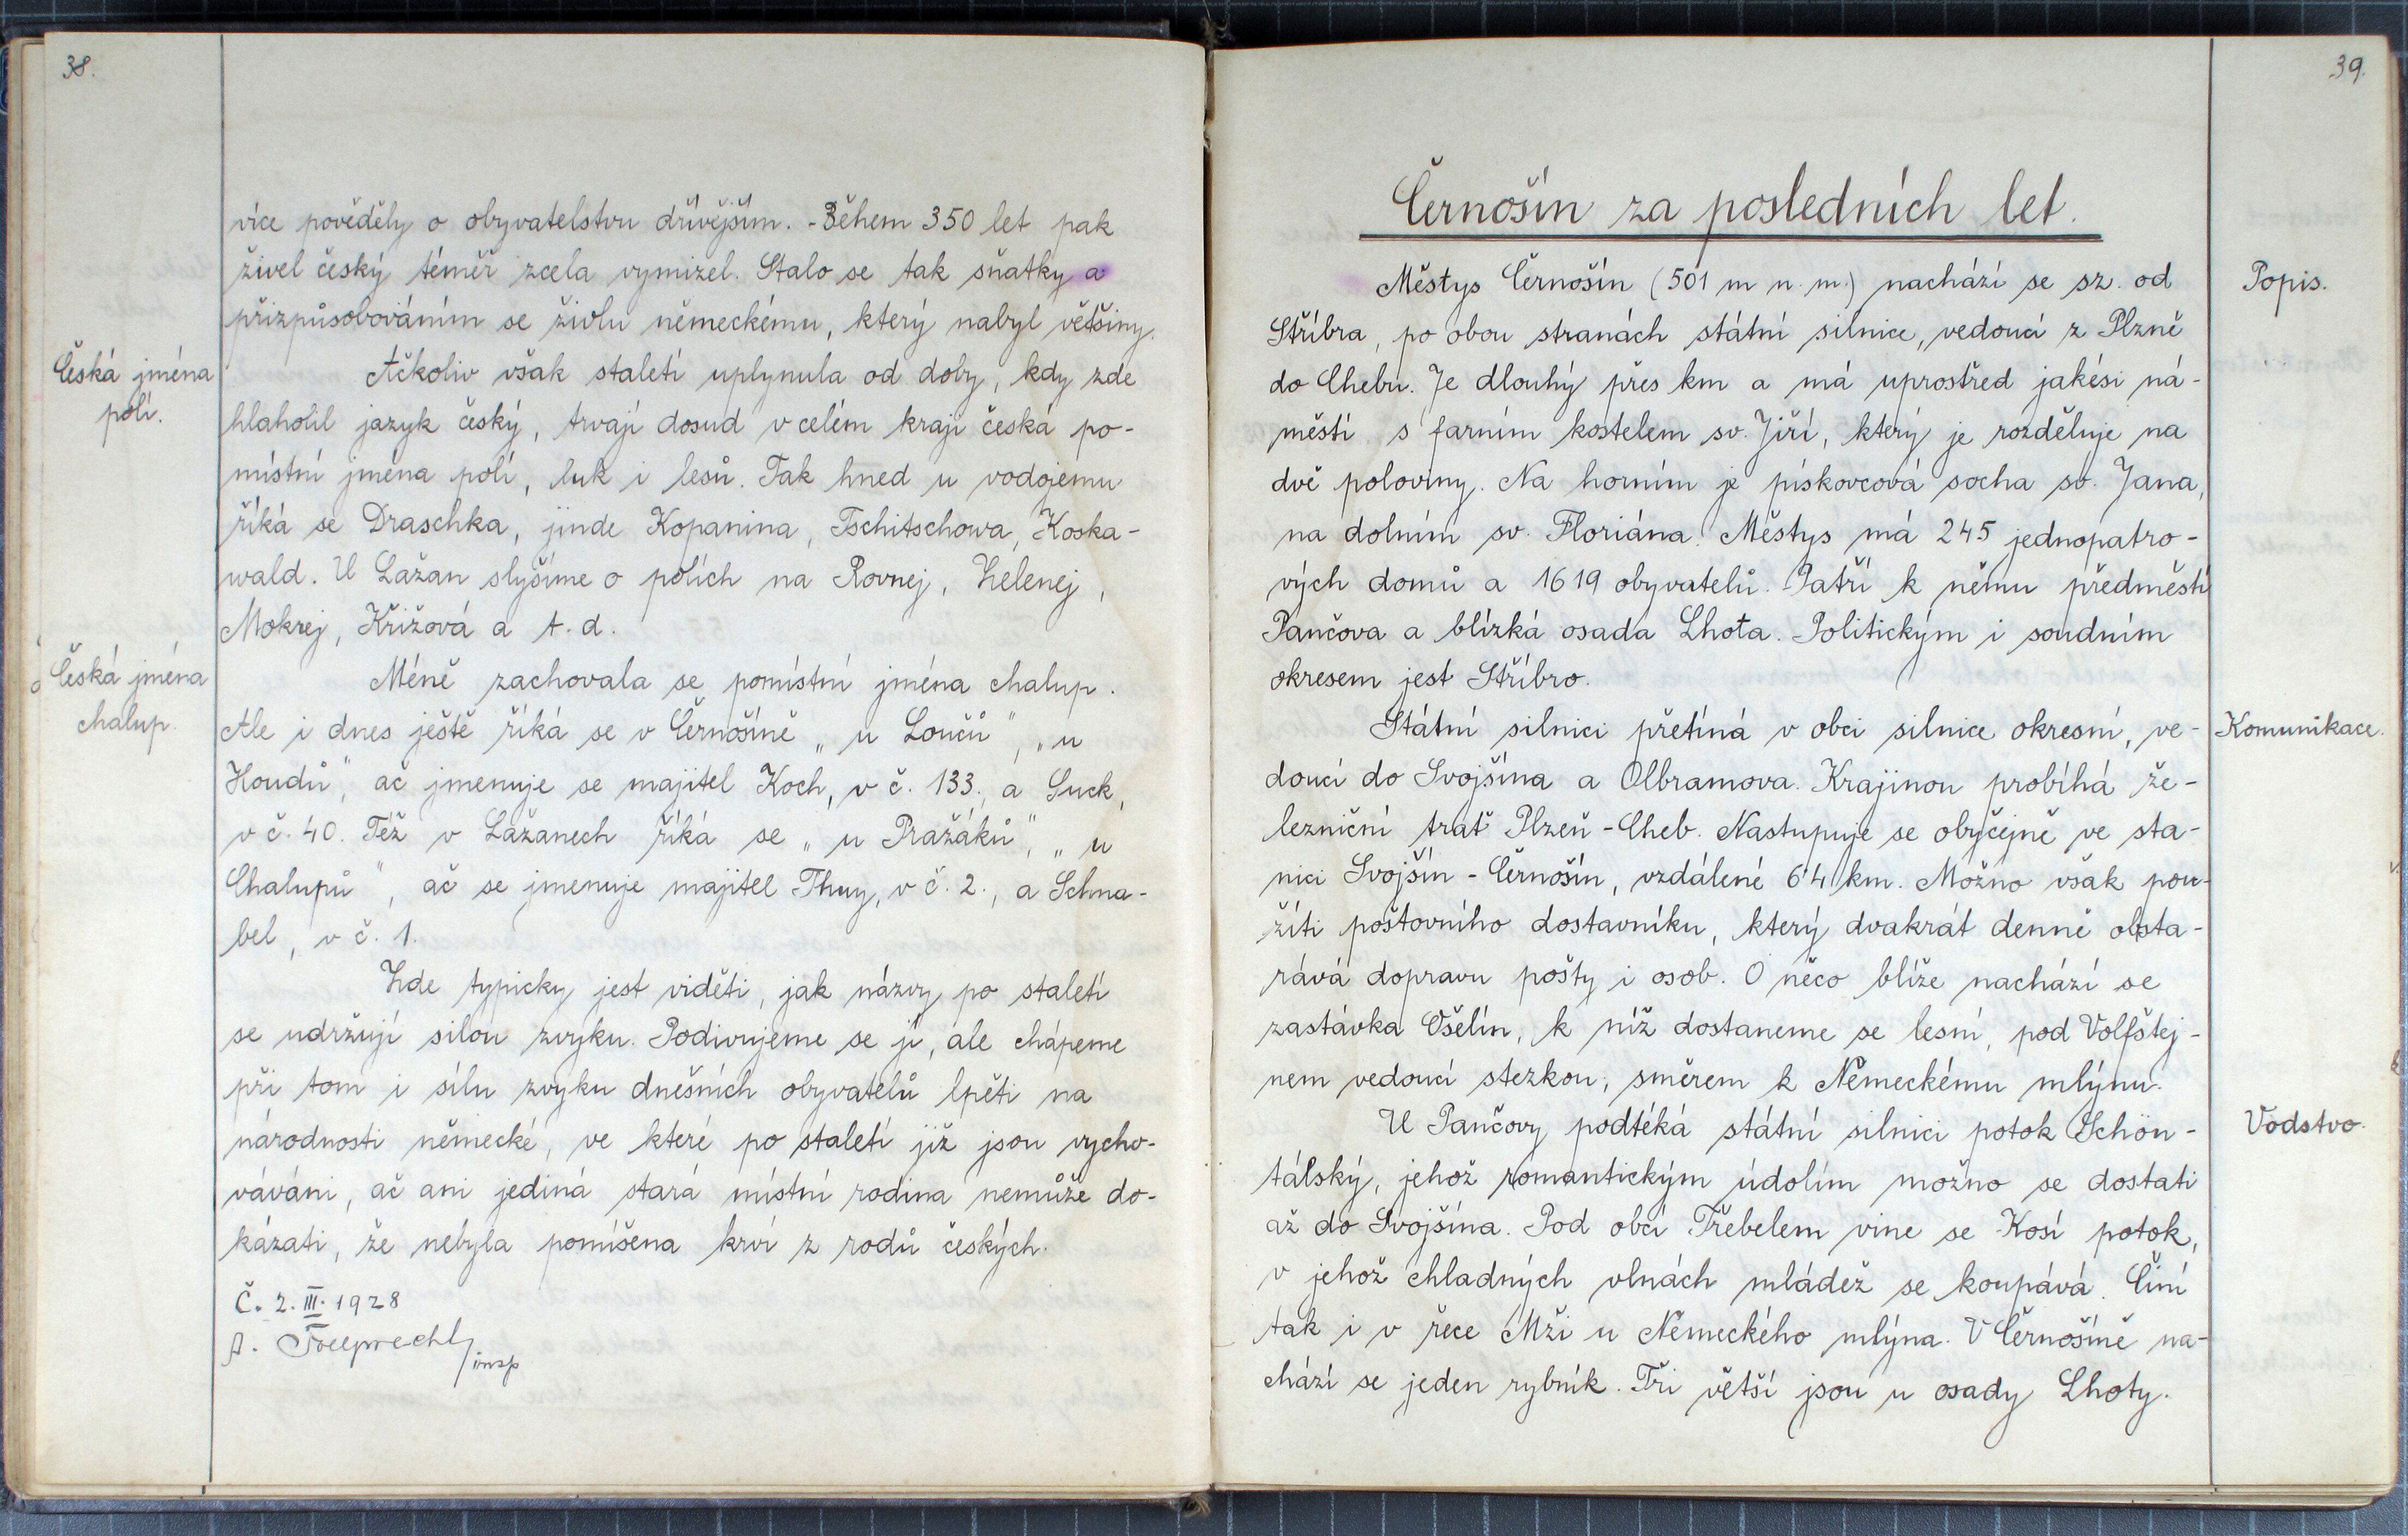 38.
více pověděly o obyvatelstvu dřívějším. - Během 350 let pak
živel český téměř zcela vymizel. Stalo se tak sňatky a
přizpůsobováním se živlu německému, který nabyl většiny.
Česká jména
polí.
Ačkoliv však staletí uplynula od doby, kdy zde
hlaholil jazyk český, trvají dosud v celém kraji česká po-
místní jména polí, luk i lesů. Tak hned u vodojemu
říká se Draschka, jinde Kopanina, Tschitschowa, Koska-
wald. U Lažan slyšíme o polích na Rovnej, Zelenej,
Mokrej, Křižová a t. d.
Česká jména
chalup.
Méně zachovala se pomístní jména chalup.
Ale i dnes ještě říká se v Černošíně „u Loučů", „u
Houdů", ač jmenuje se majitel Koch, v č. 133., a Suck,
v č. 40. Též v Lažanech říká se „u Pražáků", „u
Chalupů", ač se jmenuje majitel Thuy, v č. 2., a Schna-
bel, v č. 1.
Zde typicky jest viděti, jak názvy po staletí
se udržují silou zvyku. Podivujeme se jí, ale chápeme
při tom i sílu zvyku dnešních obyvatelů lpěti na
národnosti německé, ve které po staletí již jsou vycho-
váváni, ač ani jediná stará místní rodina nemůže do-
kázati, že nebyla pomíšena krví z rodů českých.
Č. 2. III. 1928
insp
39.
Černošín za posledních let.
Popis.
Městys Černošín (501 m n. m.) nachází se sz. od
Stříbra, po obou stranách státní silnice, vedoucí z Plzně
do Chebu. Je dlouhý přes km a má uprostřed jakési ná-
městí s farním kostelem sv. Jiří, který je rozděluje na
dvě poloviny. Na horním je pískovcová socha sv. Jana,
na dolním sv. Floriána. Městys má 245 jednopatro-
vých domů a 1619 obyvatelů. Patří k němu předměstí
Pančova a blízká osada Lhota. Politickým i soudním
okresem jest Stříbro.
Komunikace.
Státní silnici přetíná v obci silnice okresní, ve-
doucí do Svojšína a Olbramova. Krajinou probíhá že-
lezniční trať Plzeň - Cheb. Nastupuje se obyčejně ve sta-
nici Svojšín - Černošín, vzdálené 6˙4 km. Možno však pou-
žíti poštovního dostavníku, který dvakrát denně obsta-
rává dopravu pošty i osob. O něco blíže nachází se
zastávka Ošelín, k níž dostaneme se lesní, pod Volfštej-
nem vedoucí stezkou, směrem k Německému mlýnu.
Vodstvo.
U Pančovy podtéká státní silnici potok Schön-
tálský, jehož romantickým údolím možno se dostati
až do Svojšína. Pod obcí Třebelem vine se Kosí potok,
v jehož chladných vlnách mládež se koupává. Činí
tak i v řece Mži u Německého mlýna. V Černošíně na-
chází se jeden rybník. Tři větší jsou u osady Lhoty.